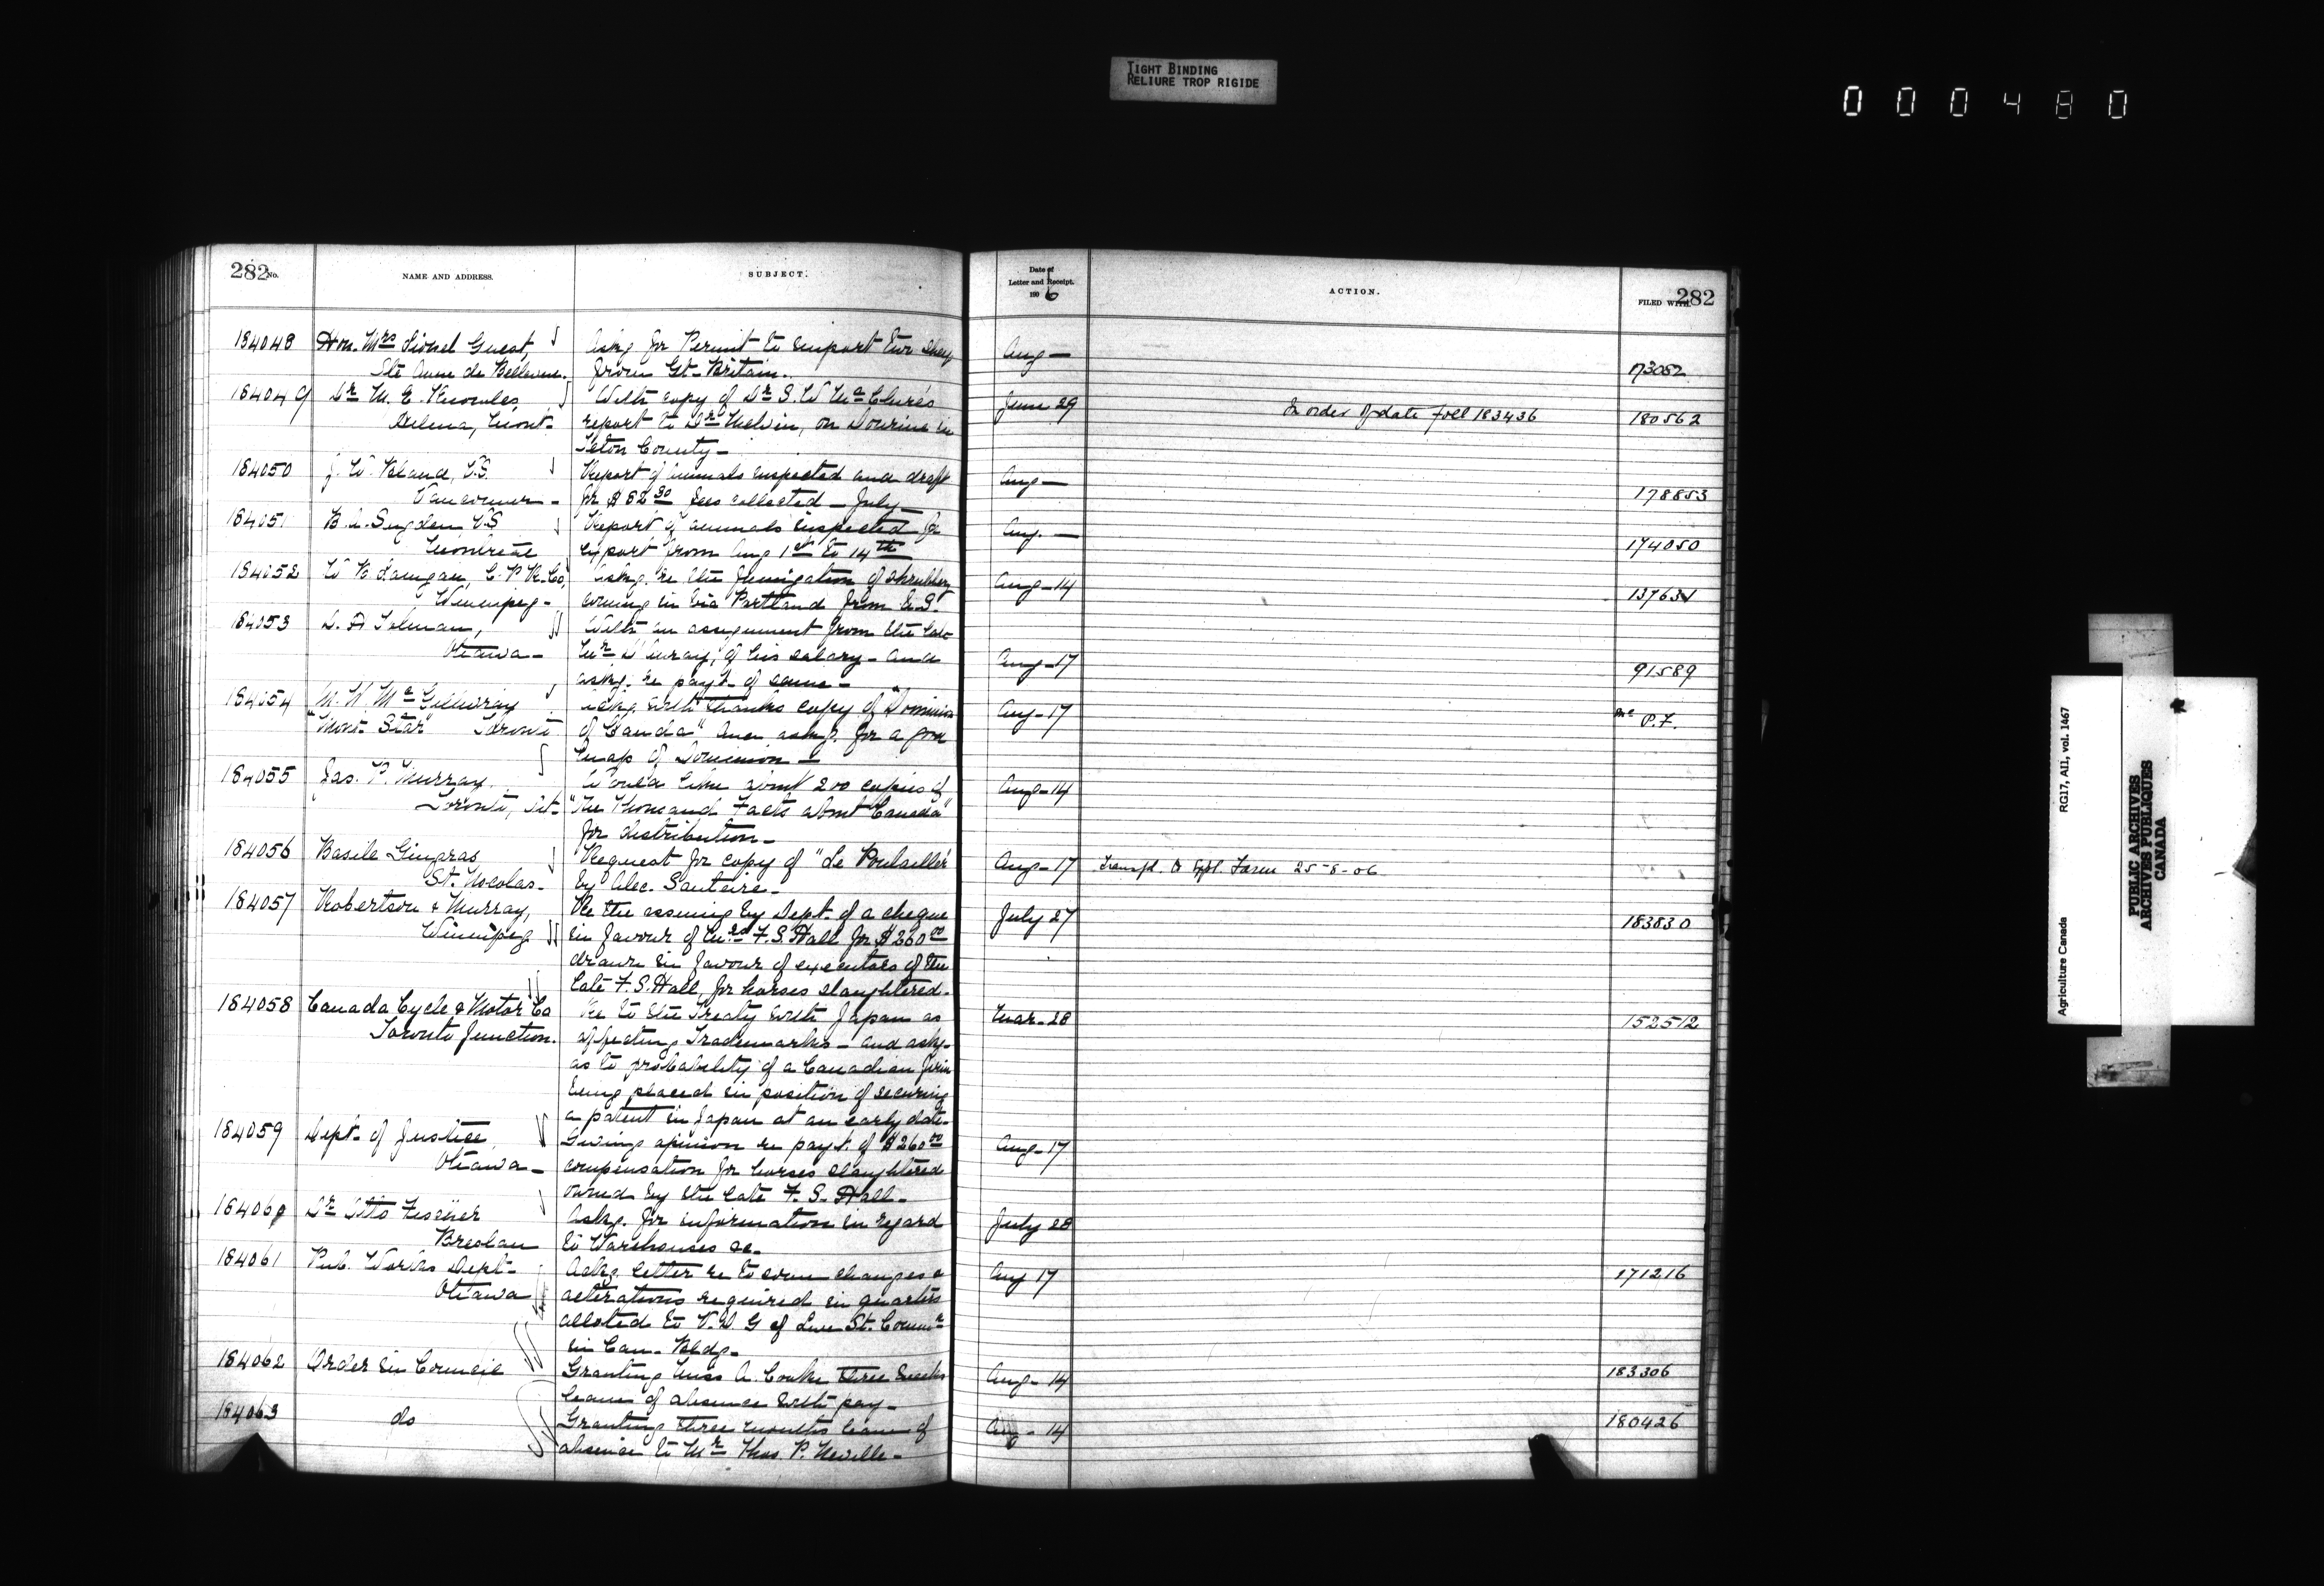 TIGHT BINDING
RELIURE TROP RIGIDE
000480
282 No.
NAME AND ADDRESS.
SUBJECT.
Date of
Letter and Receipt.
190 6
ACTION.
FILED WITH
282
184048 Hon. Mrs Lionel Guest, Askg for Permit to import two sheep Aug —
Ste Anne de Bellevue. from Gt. Britain. 173052
184049 Dr M. E. Knowles, With copy of Dr S. W McClure's June 29 In order of date foll 183436 180562
Helena, Mont- report to Dr Melvin, on Dourine in
Teton County —
184050 J. W. Bland, V.S. Report of animals inspected and draft Aug —
Vancouver - for $ 82 fees collected — July — 178853
184051 B. A. Sugden V.S Report of animals inspected for Aug. —
Montreal export from Aug 1st to 14th 174050
184052 Askg. re the fumigation of shrubbery Aug - 14
Winnipeg - coming in via Portland from U.S. 137631
184053 Tolman, With an assignment from the late
Ottawa - of his salary - and Aug - 17 91589
askg. re payt. of same -
184054 Mc Gillivray Ackg. with thanks copy of "Dominion Aug - 17 P.F.
Star" Toronto of Canada" and askg. for a good
map of Dominion —
184055 Jas. P. Murray. Would like about 200 copies of Aug - 14
Toronto, Ont - "The Thousand Facts about Canada"
for distribution -
184056 Basile Gingras Request for copy of "Le Poulailler" Aug - 17 Transfd. to Expl. Farm 25-8-06
St. Nocolas - by Alec. Santerre -
184057 Robertson & Murray, Re the issuing by Dept. of a cheque July 27 183830
Winnipeg in favour of Mrs F. S. Hall for $260 00
drawn in favour of executors of the
late F. S. Hall, for horses slaughtered.
184058 Canada Cycle & Motor Co Re to the Treaty with Japan as Mar - 28 152512
Toronto Junction. affecting Trademarks - and askg.
as to probability of a Canadian firm
being placed in position of securing
a patent in Japan at an early date -
184059 Dept. of Justice, Giving opinion re payt. of $260 00 Aug - 17
Ottawa - compensation for horses slaughtered
owned by the late F. S. Hall -
184060 Dr Otto Askg. for information in regard July 28
Breslau to Warehouses &c -
184061 Pub. Works Dept - Ackg. letter re to some changes & Aug 17 171216
Ottawa alterations required in quarters
alloted to V. D. G of Live St. Commr
in Can. Bldg -
184062 Order in Council Granting Miss A. Cooke three weeks Aug - 14 183306
leave of absence with pay -
184063 do Granting three months leave of Aug - 14 180426
absence to Mr Thos. P. Neville -
Agriculture Canada RG17, AII, vol. 1467
PUBLIC ARCHIVES
ARCHIVES PUBLIQUES
CANADA